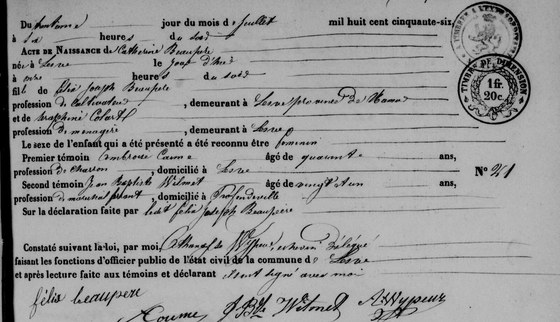 Du trentième jour du mois de Juillet mil huit cent cinquante-six
à six heures du soir
ACTE DE NAISSANCE de Catherine Beaupère
née à Lesve le jour d'hier
à onze heures du soir
fill de Félix Joseph Beaupère
profession de Cultivateur, demeurant à Lesve province de Namur
et de Séraphine Colart
profession de ménagère, demeurant à Lesve
Le sexe de l'enfant qui a été présenté a été reconnu être féminin
Premier témoin Ambroise âgé de quarante ans,
profession de Charron, domicilié à Lesve
Second témoin Jean Baptiste Witonet âgé de vingt un ans,
profession de maréchal ferrant, domicilié à Profondeville
Sur la déclaration faite par ledit félix Joseph Beaupère
N° 21
Constaté suivant la loi, par moi, échevin Délégué
faisant les fonctions d'officier public de l'état civil de la commune de Lesve
et après lecture faite aux témoins et déclarant ils ont signé avec moi
félix beaupere
J. Bte Witonet
TIMBRE DE DIMENSION
1 fr.
20c.